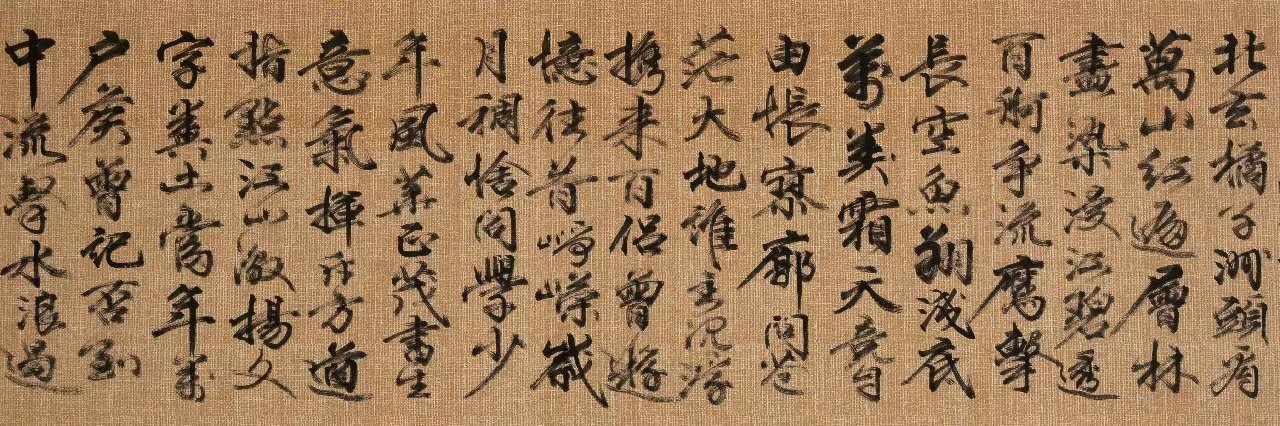 北去橘子洲頭看
萬山红遍層林
盡染漫江碧透
百舸争流鷹擊
長空魚翔淺底
萬類霜天競自
由悵寥廓問蒼
茫大地誰主沉浮
携来百侣曾遊
憶往昔崢嶸歲
月稠恰同學少
年風華正茂書生
意氣揮斥方遒
指點江山激揚文
字糞土當年萬
户侯曾記否到
中流擊水浪遏